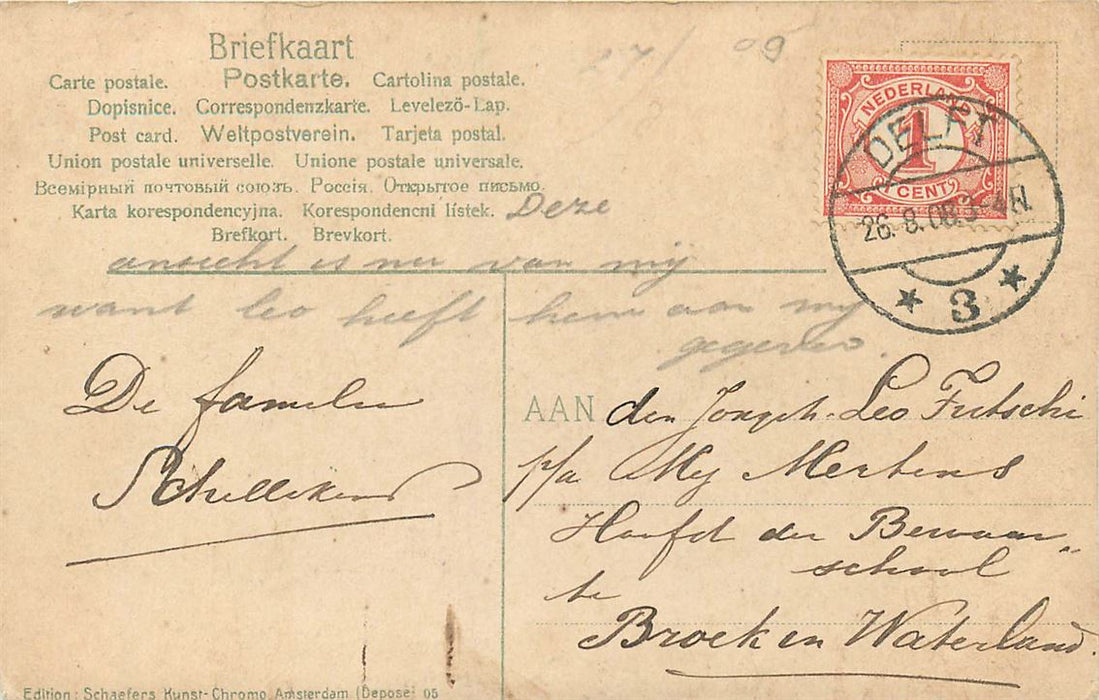 Briefkaart
Carte postale. Postkarte. Cartolina postale.
Dopisnice. Correspondenzkarte. Levelező-Lap.
Post card. Weltpostverein. Tarjeta postal.
Union postale universelle. Unione postale universale.
Всемiрный почтовый союзъ. Россiя. Открытое письмо.
Karta korespondencyjna. Korespondencni lístek.
Brefkort. Brevkort.
27/ 09
NEDERLAND
1
CENT
DELFT
26.8.08.3-4N.
3
Deze
ansicht is nu van mij
want leo heeft hem aan mij
gegeven.
De familie
Schillekens
AAN den Jongeh. Leo Futschi
p/a Mej Mertens
Hoofd der Bewaar„
school
te
Broek in Waterland.
Edition: Schaefers Kunst-Chromo Amsterdam (Deposé) 05